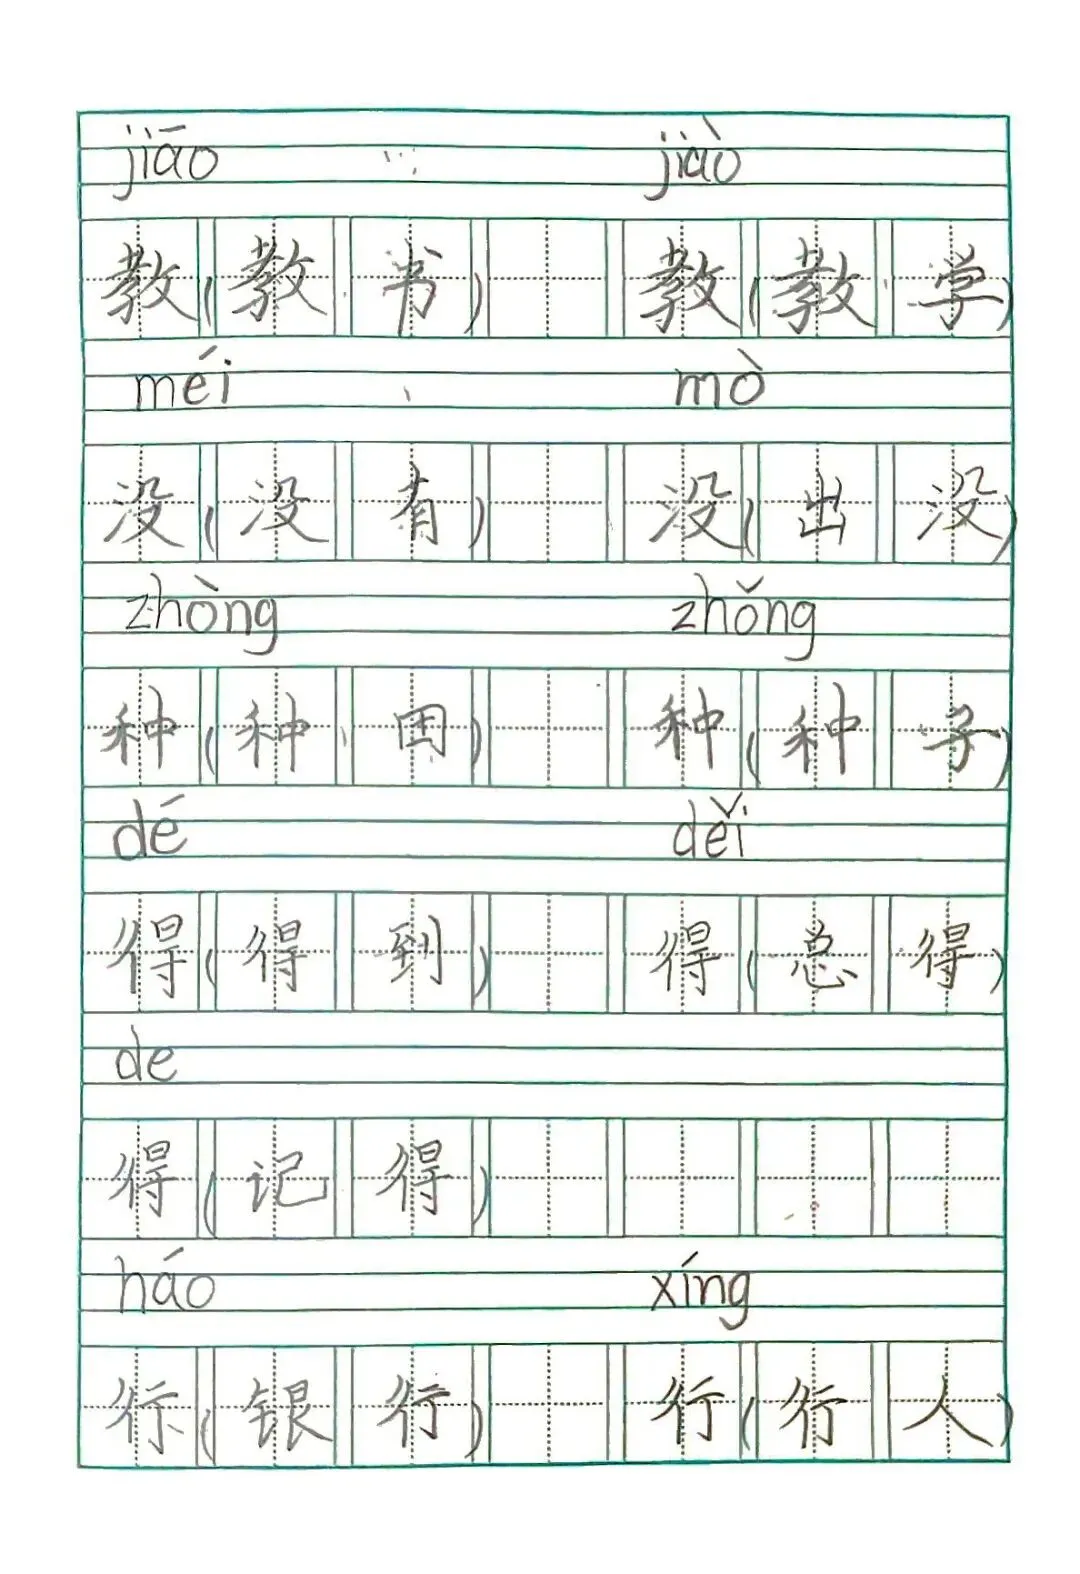 jiāo jiào
教(教书) 教(教学)
méi mò
没(没有) 没(出没)
zhòng zhǒng
种(种田) 种(种子)
dé děi
得(得到) 得(总得)
de
得(记得)
háo xíng
行(银行) 行(行人)